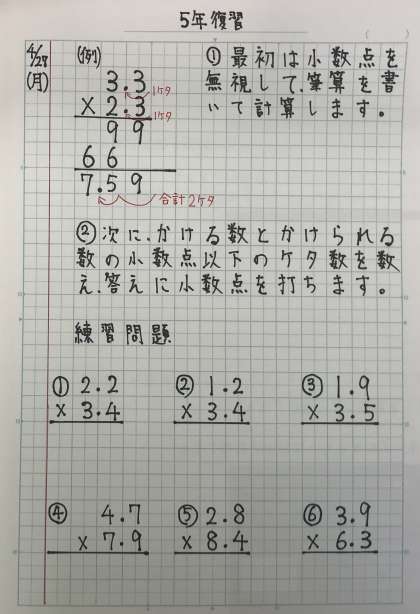 5年復習
4/28
(月)
(例)
3.3
1ケタ
×2.3
1ケタ
99
66
7.59
合計2ケタ
①最初は小数点を
無視して、筆算を書
いて計算します。
②次に、かける数とかけられる
数の小数点以下のケタ数を数
え、答えに小数点を打ちます。
練習問題
① 2.2
×3.4
② 1.2
× 3.4
③ 1.9
× 3.5
④ 4.7
× 7.9
⑤ 2.8
× 8.4
⑥ 3.9
× 6.3